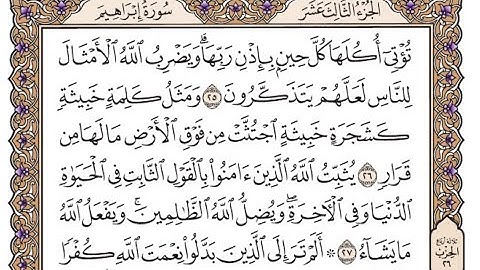 الجزء الثالث عشر
سورة إبراهيم
تُؤْتِىٓ أُكُلَهَا كُلَّ حِينٍۭ بِإِذْنِ رَبِّهَاۗ وَيَضْرِبُ ٱللَّهُ ٱلْأَمْثَالَ
لِلنَّاسِ لَعَلَّهُمْ يَتَذَكَّرُونَ ٢٥ وَمَثَلُ كَلِمَةٍ خَبِيثَةٍ
كَشَجَرَةٍ خَبِيثَةٍ ٱجْتُثَّتْ مِن فَوْقِ ٱلْأَرْضِ مَا لَهَا مِن
قَرَارٍ ٢٦ يُثَبِّتُ ٱللَّهُ ٱلَّذِينَ ءَامَنُوا۟ بِٱلْقَوْلِ ٱلثَّابِتِ فِى ٱلْحَيَوٰةِ
ٱلدُّنْيَا وَفِى ٱلْـَٔاخِرَةِۖ وَيُضِلُّ ٱللَّهُ ٱلظَّٰلِمِينَۚ وَيَفْعَلُ ٱللَّهُ
مَا يَشَآءُ ٢٧ ۞ أَلَمْ تَرَ إِلَى ٱلَّذِينَ بَدَّلُوا۟ نِعْمَتَ ٱللَّهِ كُفْرًا
ثلاثة أرباع
الحزب
٢٦